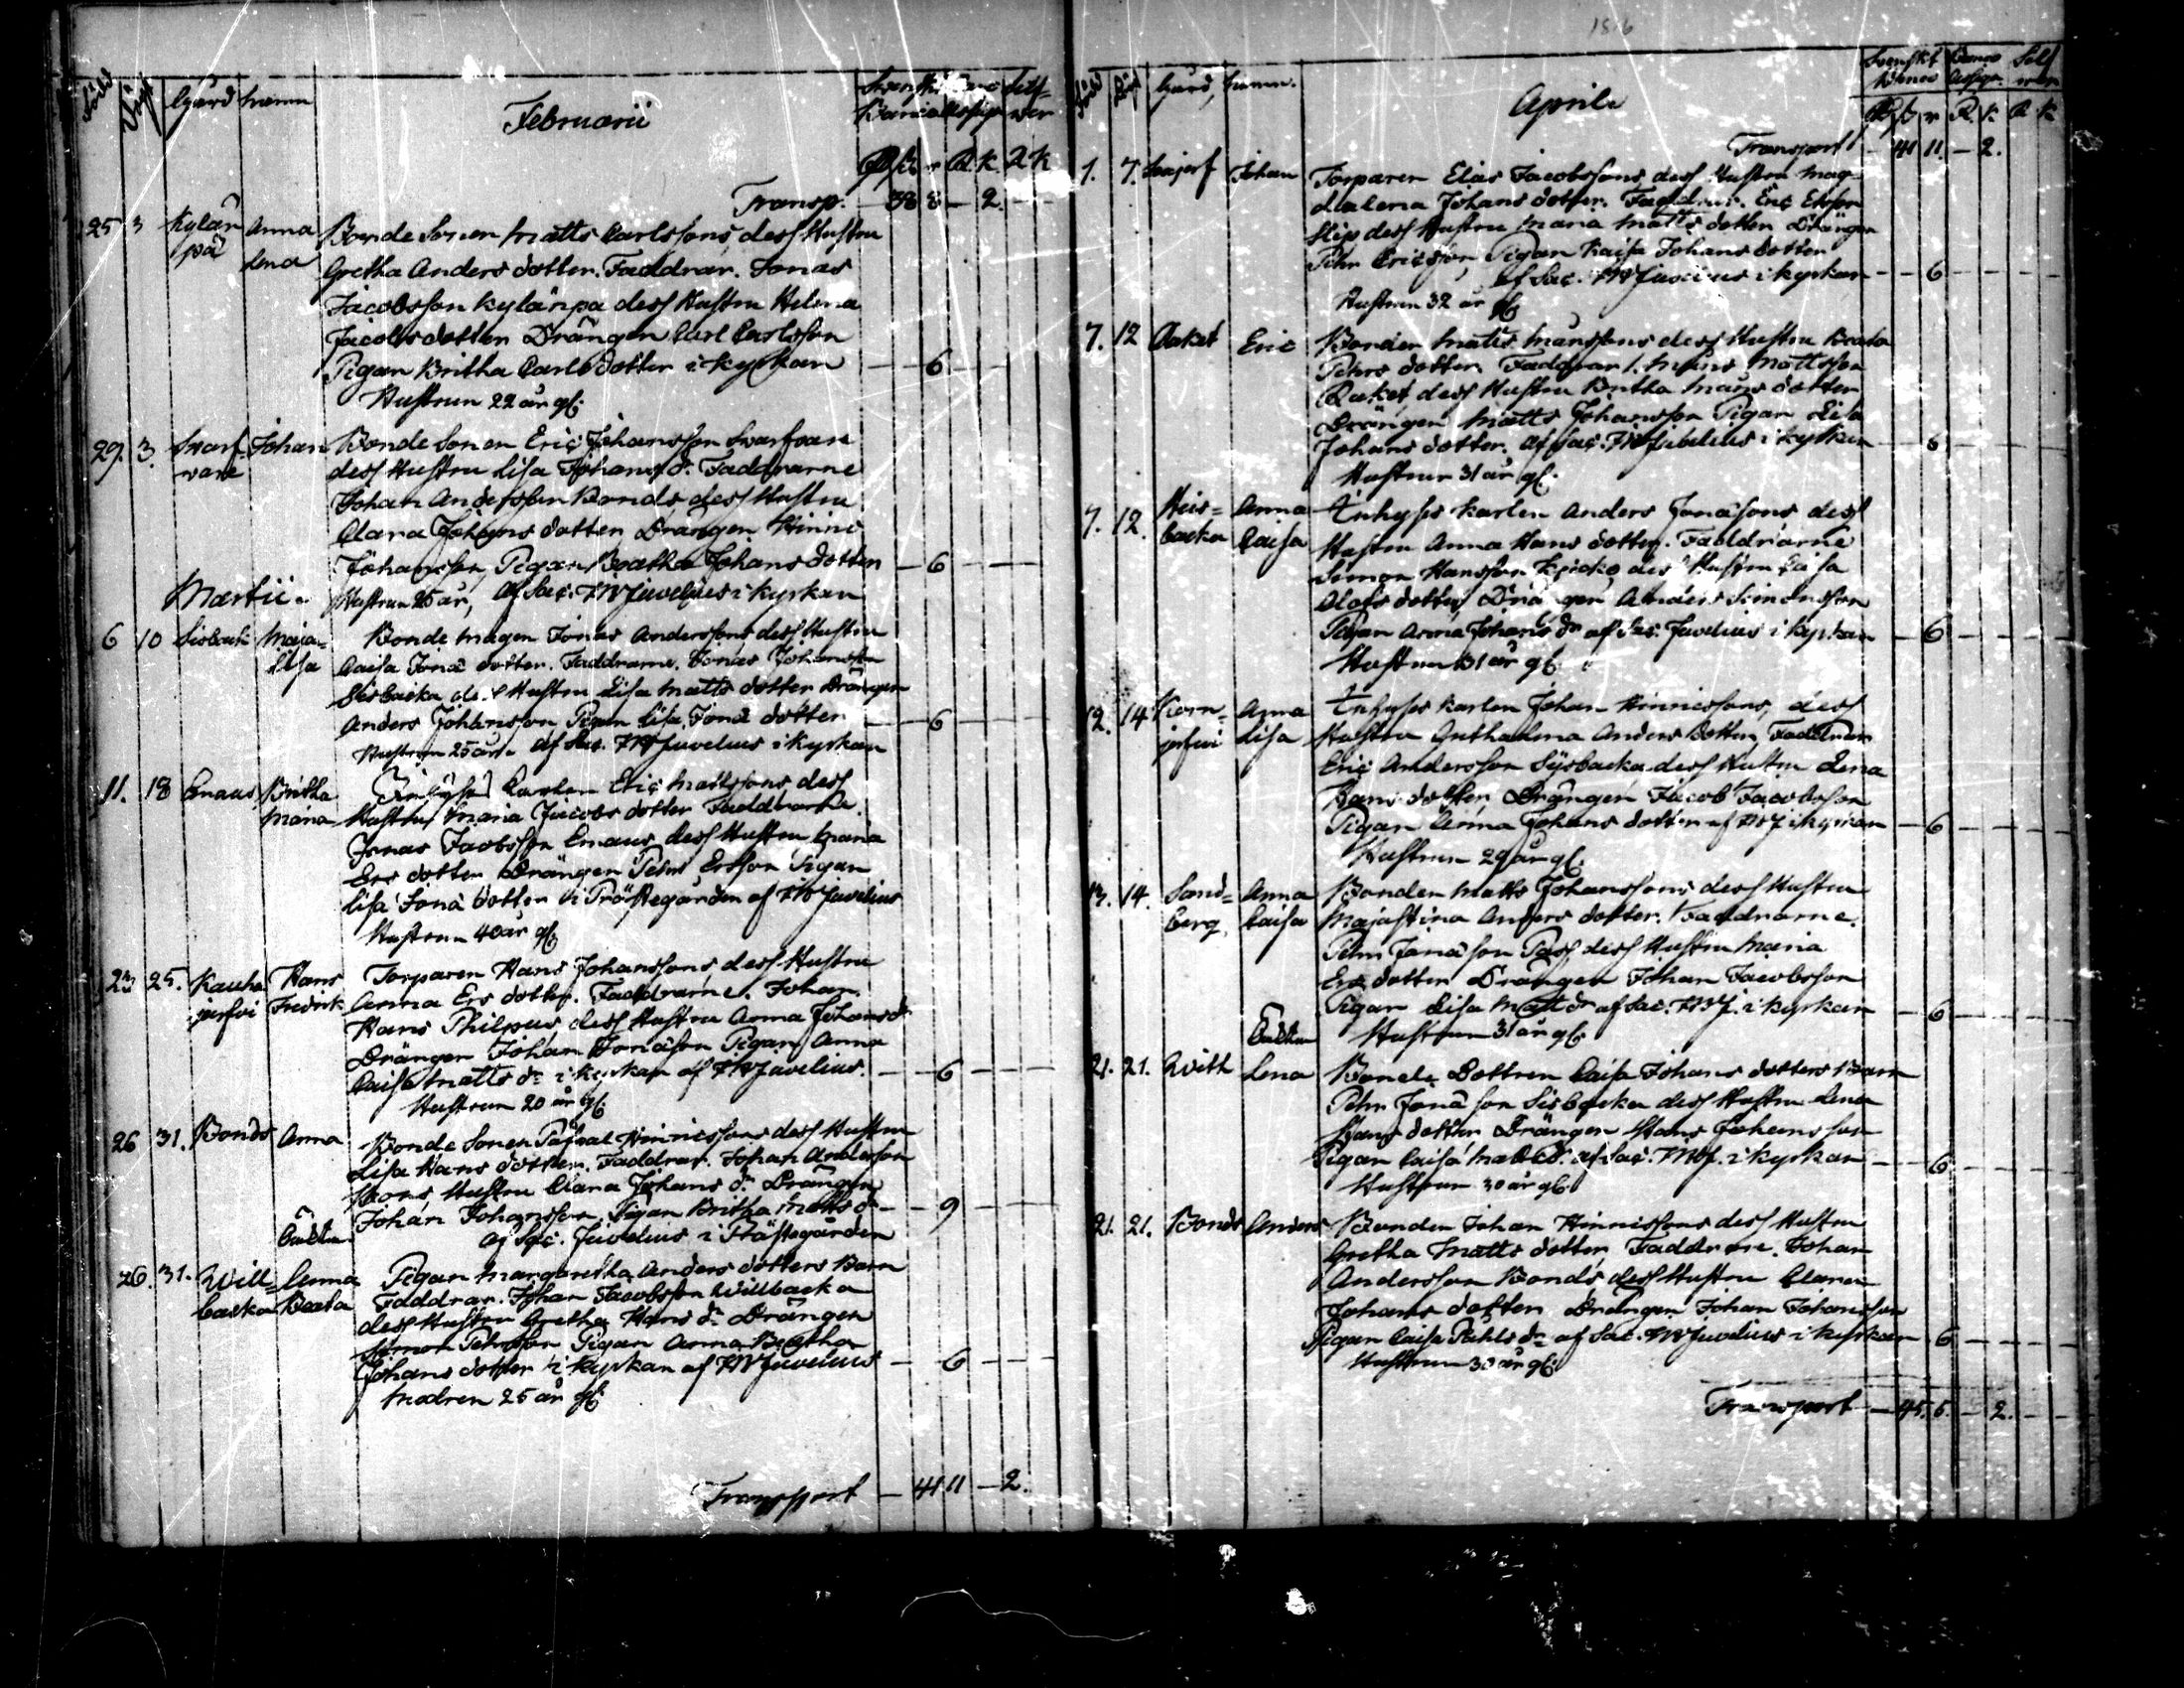 Född Döpt Gård Namn
Februarii
Transp. — 38 8 — 2.
25 3 Kylän Anna Bonde Sonen Matts Carlssons dess Hustru
pä Lena Gretha Anders dotter. Faddrar. Jonas
Jacobsson Kylänpä dess Hustru Helena
Jacobs dotter Drängen Carl Carlsson
Pigan Britha Carls dotter i Kyrkan — 6 — — —
Hustrun 22 år gl.
29. 3. Svarf- Johan Bonde Sonen Eric Johansson Svarfvare
vare dess Hustru Lisa Johans dr. Faddrarne
Johan Andersson Bonds, dess Hustru
Clara Johans dotter Drängen Hinric
Johansson, Pigan Beatha Johans dotter — 6 — — —
Martii Hustrun 25 år, af Sac. FW Juvelius i Kyrkan
6 10 Sisback Maja Bonde Magen Jonas Anderssons dess Hustru
Lisa Caisa Jona dotter. Faddrarne. Jonas Johansson
Sisbacka dess Hustru Lisa Matts dotter Drängen
Anders Johansson Pigan Lisa Jona dotter — 6 — — —
Hustrun 25 år. af Sac. FW Juvelius i Kyrkan
11. 18 Emaus Britha Inhyses Karlen Eric Mattssons, dess
Maria Hustru Maria Jacobs dotter Faddrarne
Jonas Jacobsson Emaus dess Hustru Maria
Ers dotter Drängen Pehr Ersson Pigan
Lisa Jona dotter i Prästegården af FW Juvelius
Hustrun 40 år gl.
23 25. Kauha Hans Torparen Hans Johanssons dess Hustru
jerfvi Fredrik Anna Ers dotter. Faddrarne. Johan
Hans Philpus dess Hustru Anna Johans dr
Drängen Johan Jonasson Pigan Anna
Caisa Matts dr i Kyrkan af FW Juvelius. — 6 — — —
Hustrun 20 år gl.
26 31. Bonds Anna Bonde Sonen Hinricssons dess Hustru
Lisa Hans dotter. Faddrar. Johan Andersson
Bonds Hustru Clara Johans dr Drängen
Johan Johansson, Pigan Britha Matts dr — 9 — — —
Oäkta af Sac. Juvelius i Prästegården
26. 31. Will- Anna Pigan Margaretha Anders dotters Barn
backa Beata Faddrar. Johan Jacobsson Willbacka
dess Hustru Gretha Hans dr Drängen
Simon Pehrsson Pigan Anna Beatha
Johans dotter i Kyrkan af FW Juvelius — 6 — — —
Modren 25 år gl.
Transport — 41 11 — 2.
Född Döpt Gård, Namn.
Aprili
Transport — 41 11. — 2.
1. 7. Johan Torparen Elias Jacobssons dess Hustru Mag-
dalena Johans dotter. Faddrar. Eric Ersson
Slip dess Hustru Maria Matts dotter Drängen
Pehr Ericsson, Pigan Kaisa Johans dotter
af Sac. FW Juvelius i Kyrkan — 6 — — —
Hustrun 32 år gl.
7. 12 Eric Bonden Matts Månssons dess Hustru Beata
Pehrs dotter. Faddrar. Måns Mattsson
dess Hustru Britha Måns dotter
Drängen Matts Johansson Pigan Lisa
Johans dotter. af Sac. FW Juvelius i Kyrkan — 6 — — —
Hustrun 31 år gl.
7. 12. Heis- Anna Inhyses Karlen Anders Jonasons dess
backa Caisa Hustru Anna Hans dotter. Faddrarne
Simon Hansson dess Hustru Caisa
Olofs dotter, Drängen Anders Simonsson
Pigan Anna Johans dr af Sac. Juvelius i Kyrkan — 6 — — —
Hustrun 31 år gl.
12. 14 Anna Inhyses Karlen Johan Hinricssons, dess
jerfvi Lisa Hustru Grethalena Anders dotter, Faddrar
Eric Andersson Sysbacka dess Hustru Lena
Hans dotter, Drängen Jacob Jacobsson
Pigan Anna Johans dotter af FWJ i Kyrkan — 6 — — —
Hustrun 29 år gl.
13. 14. Sand- Anna Bonden Matts Johanssons dess Hustru
berg Caisa Majastina Anders dotter. Faddrarne.
Pehr Jonason Pass dess Hustru Maria
Ers dotter Drängen Johan Jacobsson
Pigan Lisa Matts dr af Sac. FWJ. i Kyrkan — 6 — — —
Oäkta Hustrun 31 år gl.
21. 21. Lena Bonde Dottren Caisa Johans dotters Barn
Pehr Jona son Sisbacka dess Hustru Lena
Hans dotter Drängen Hans Johansson
Pigan Caisa Matts dr. af Sac. FWJ. i Kyrkan — 6 — — —
Hustrun 30 år gl.
21. 21. Bonds Anders Bonden Johan Hinricssons dess Hustru
Gretha Matts dotter Faddrare. Johan
Andersson Bonds dess Hustru Clara
Johans dotter Drängen Johan Johansson
Pigan Caisa Pahls dr af Sac. FW Juvelius i Kyrkan — 6 — — —
Hustrun 30 år gl.
Transport — 45. 5. — 2. —